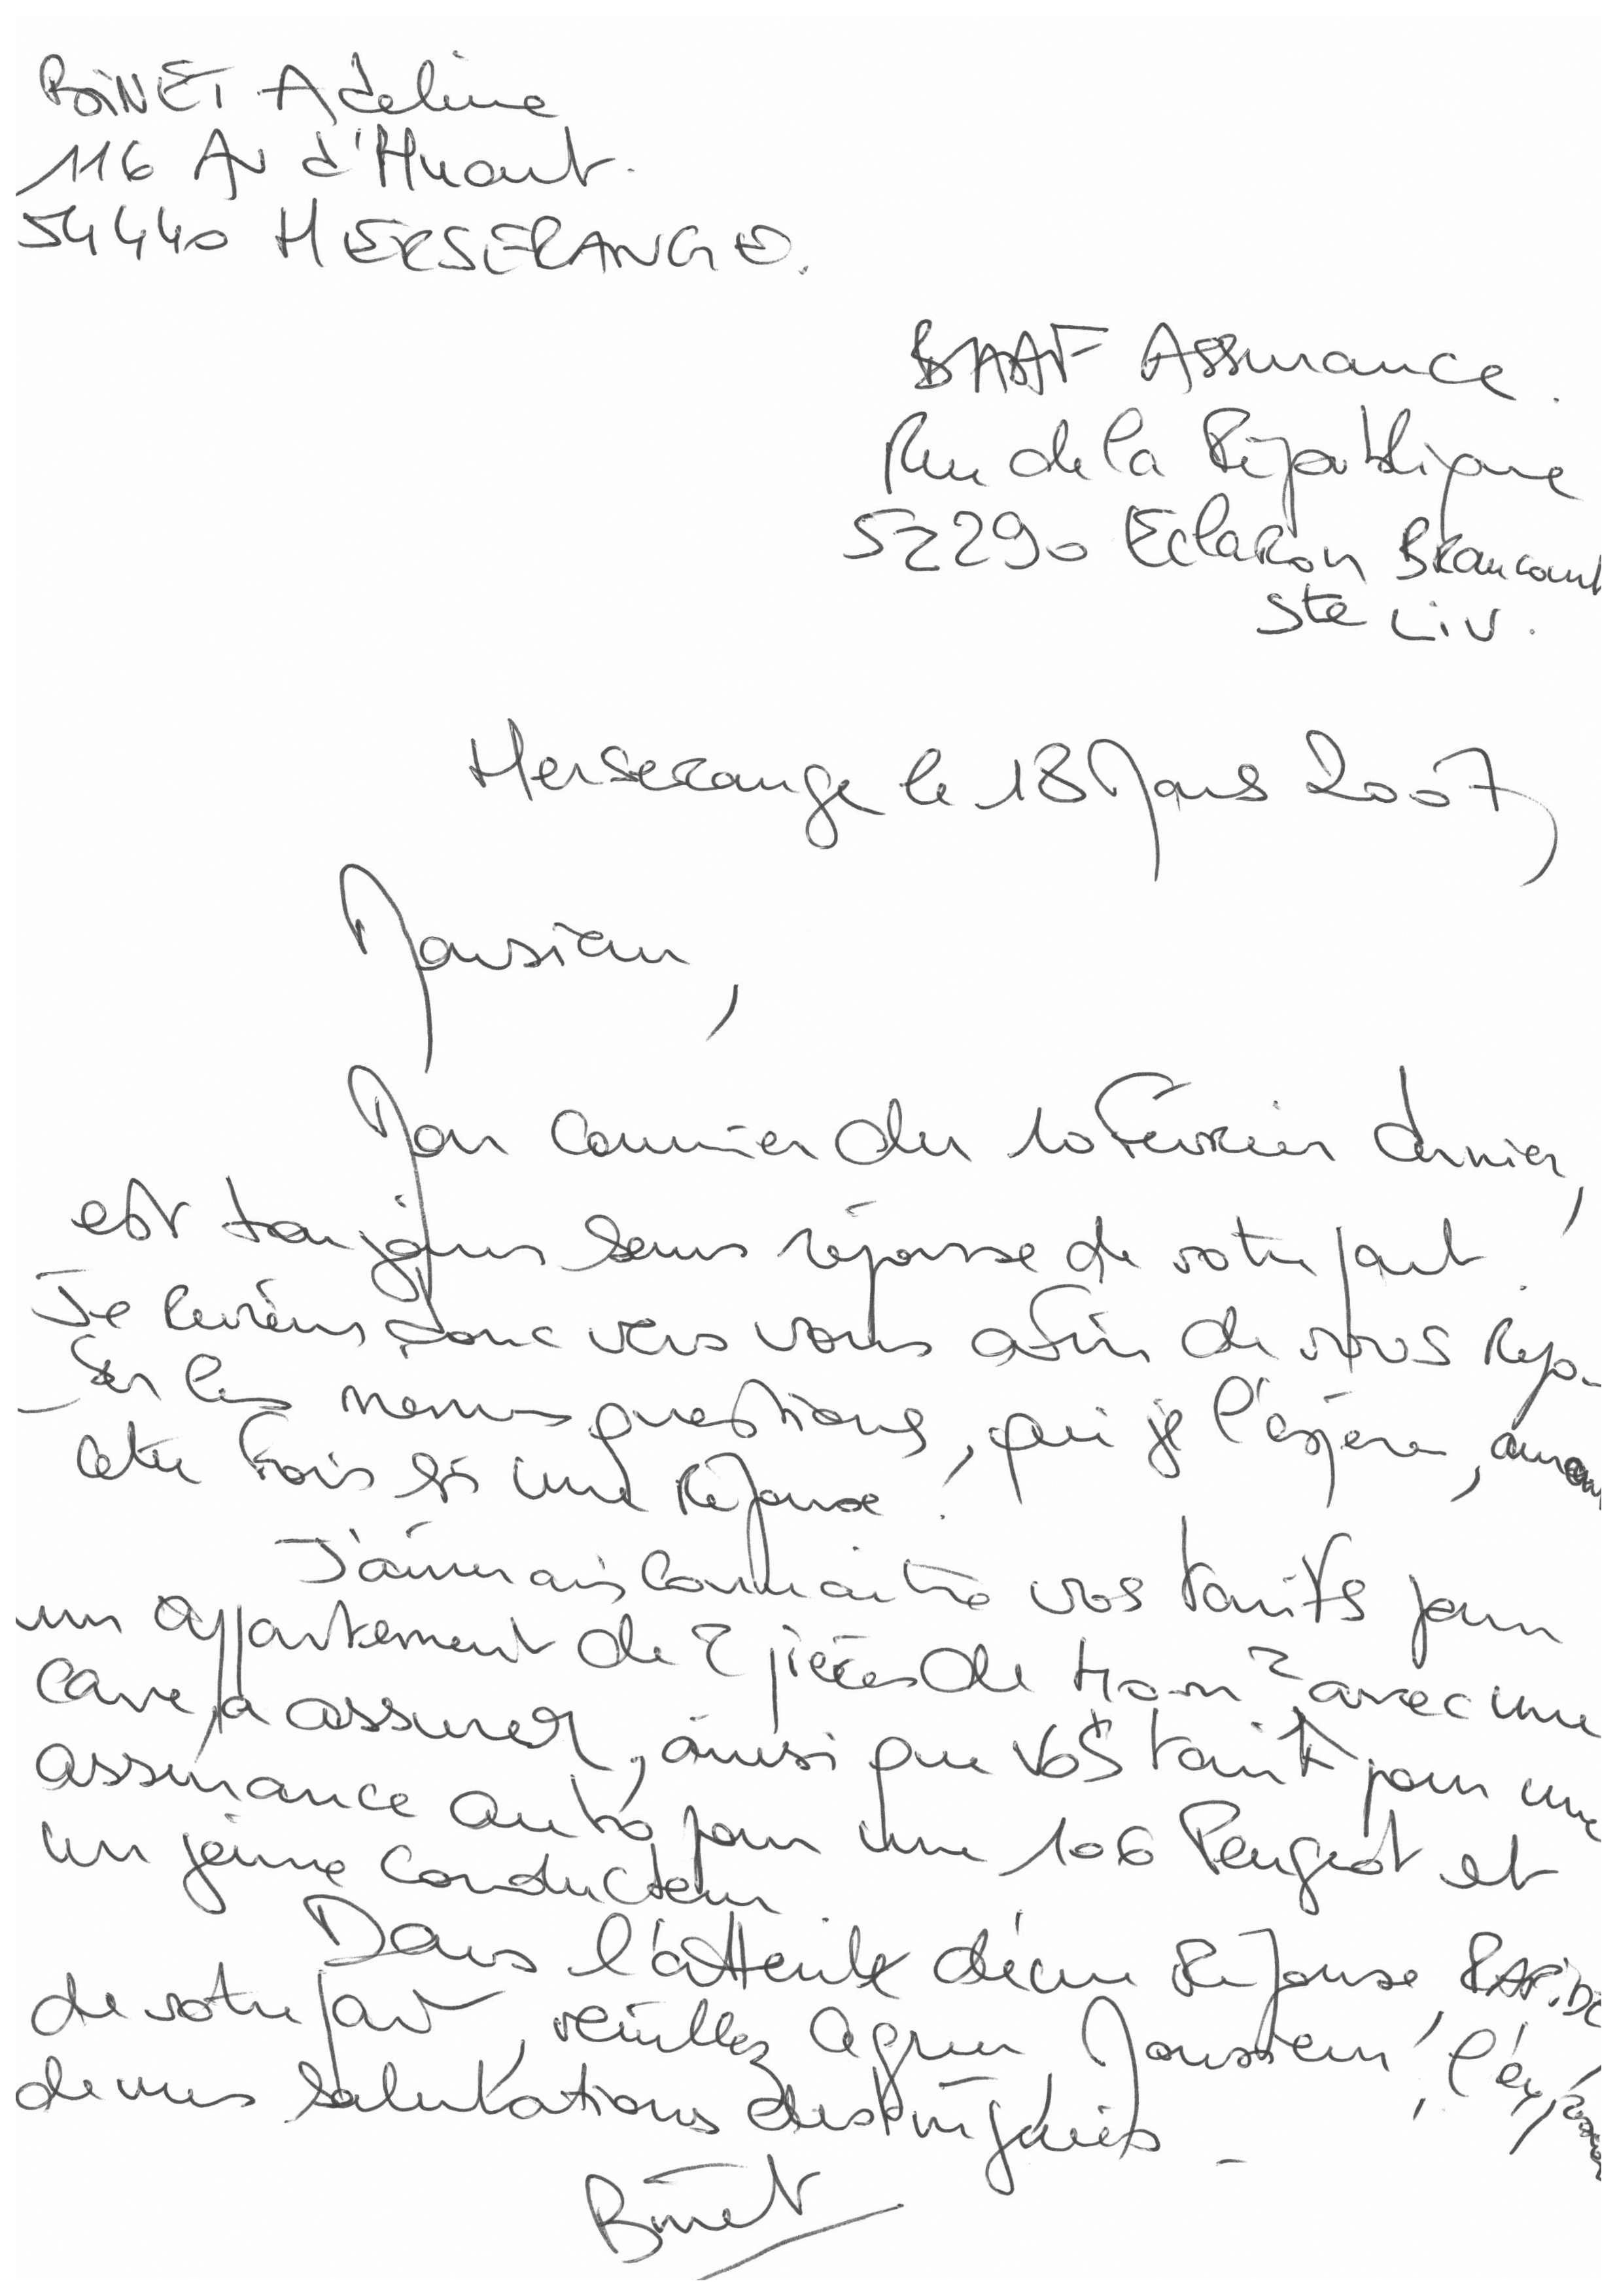 BOINET Adeline
116 Av d'Huart.
54440 HERSERANGE.
BAAF Assurance.
Rue de la République
52290 Eclaron Braucourt
Ste Liv.
Herserange le 18 Mars 2007
Monsieur,
Mon courrier du 10 Février dernier,
est toujours sans réponse de votre part.
Je reviens donc vers vous afin de vous repo-
-ser les memes questions, qui je l'espère, auront
cette fois si une Réponse!
J'aimerais connaitre vos tarifs pour
un appartement de 2 pièces de 40 m² avec une
cave, à assurer, ainsi que vos tarifs pour une
assurance auto pour une 106 Peugeot et
un jeune conducteur
Dans l'attente d'une Réponse RAPIDE
de votre part, veuillez agréer, Monsieur, l'expression
de mes salutations distinguées.
Boinet